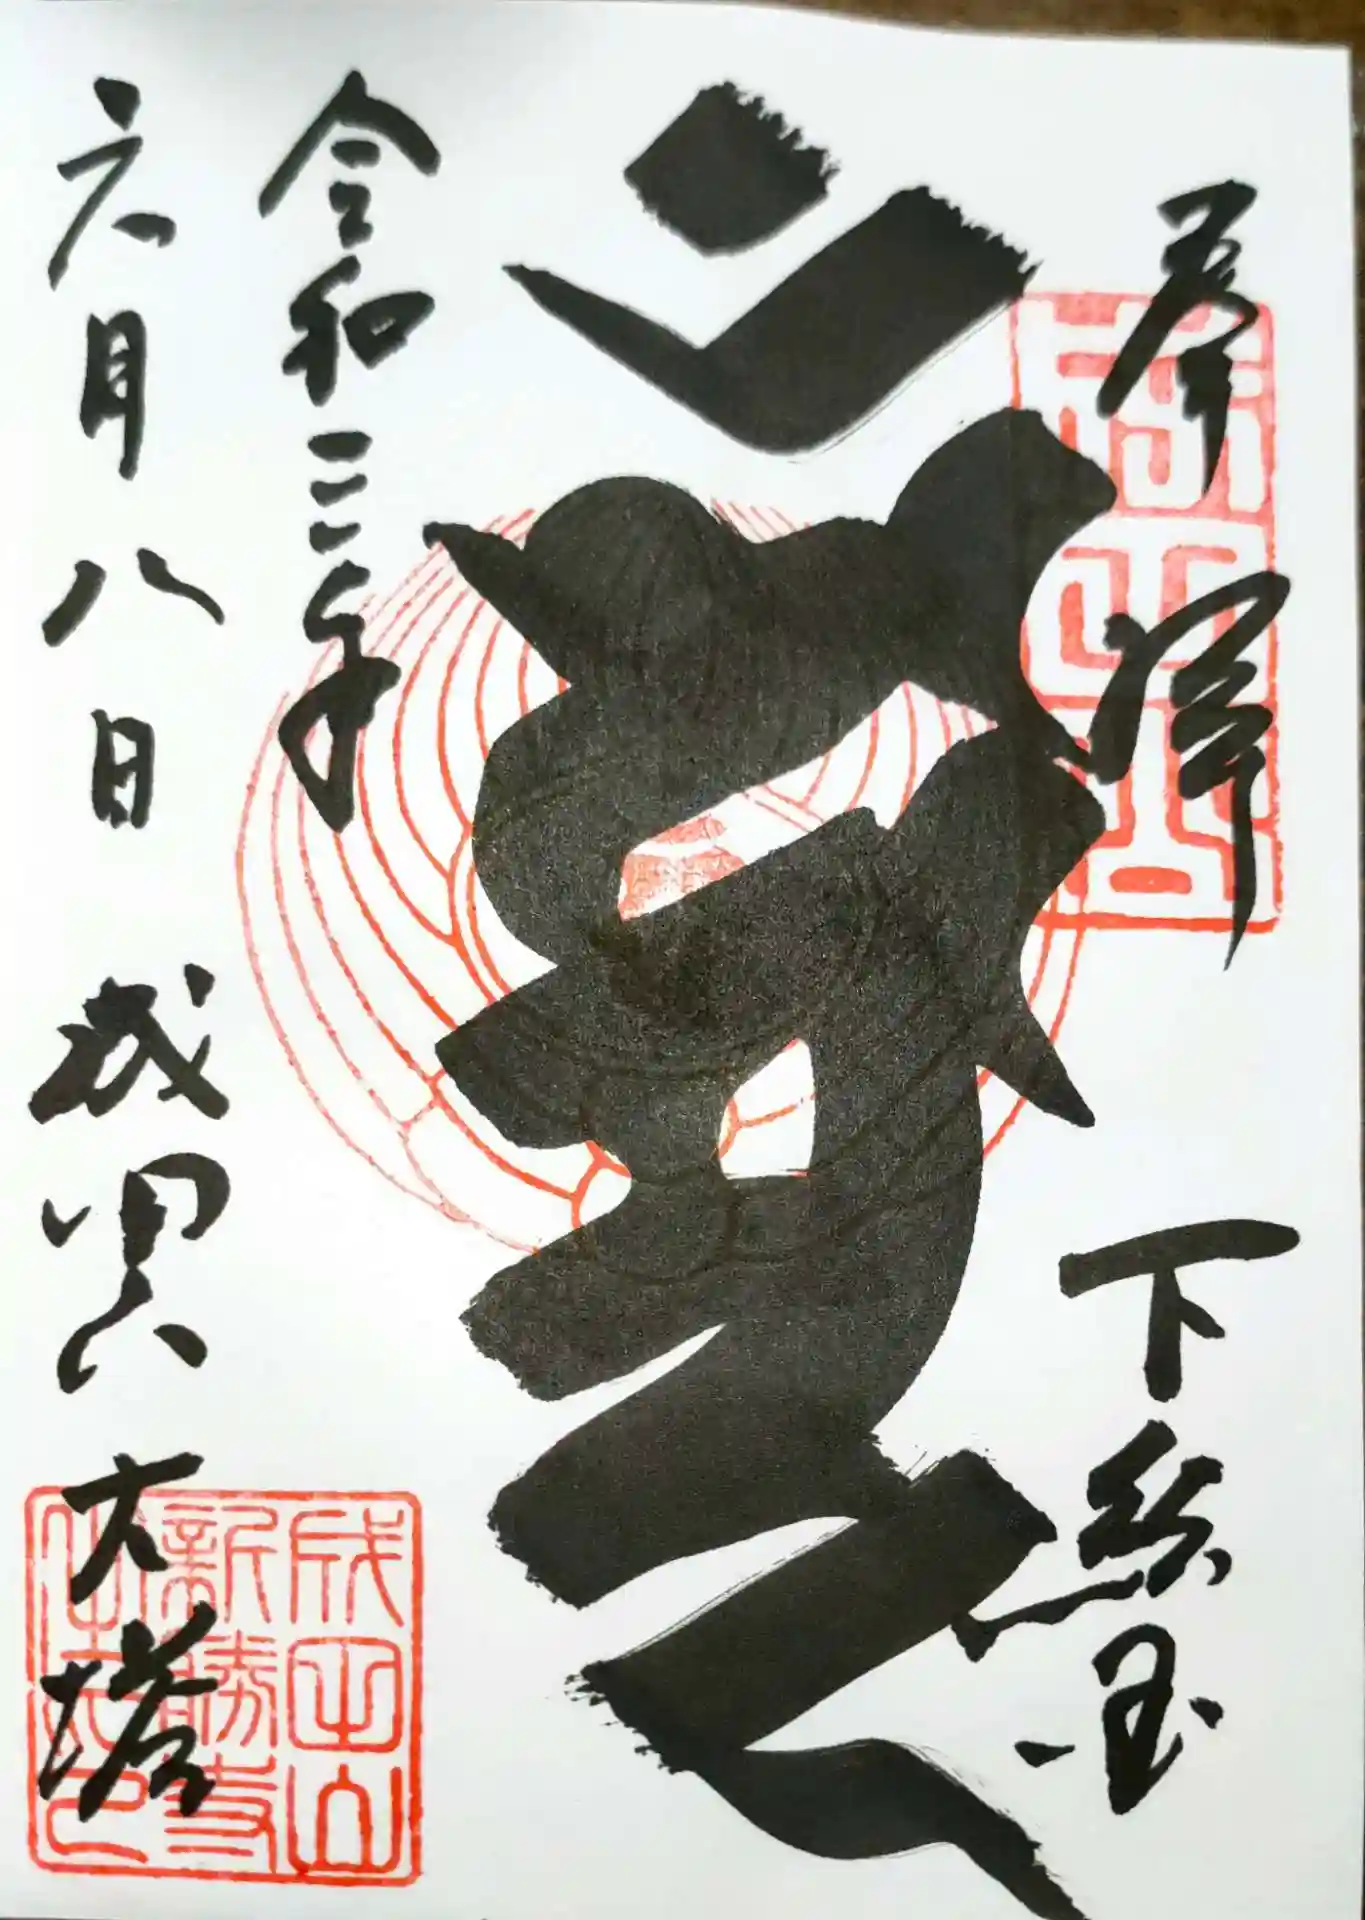 奉拝
下総国
令和二年
六月八日 成田山大塔
成田山
成田山
新勝寺